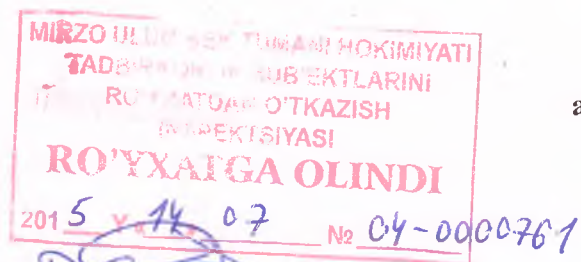 MIRZO ULUG'BEK TUMANI HOKIMIYATI
TADBIRKORLIK SUB'EKTLARINI
RO'YXATDAN O'TKAZISH
INSPEKTSIYASI
RO'YXATGA OLINDI
2015 y. 14 07 № 04-0000761
a